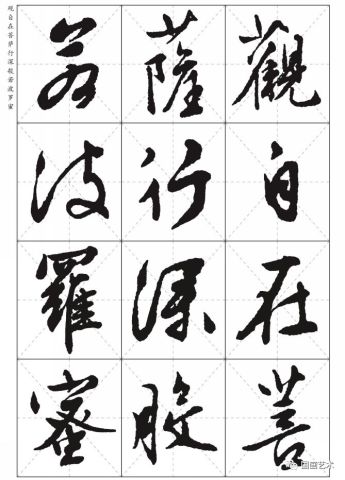 观自在菩萨行深般若波罗蜜
觀自在菩
薩行深般
若波羅蜜
国画艺术